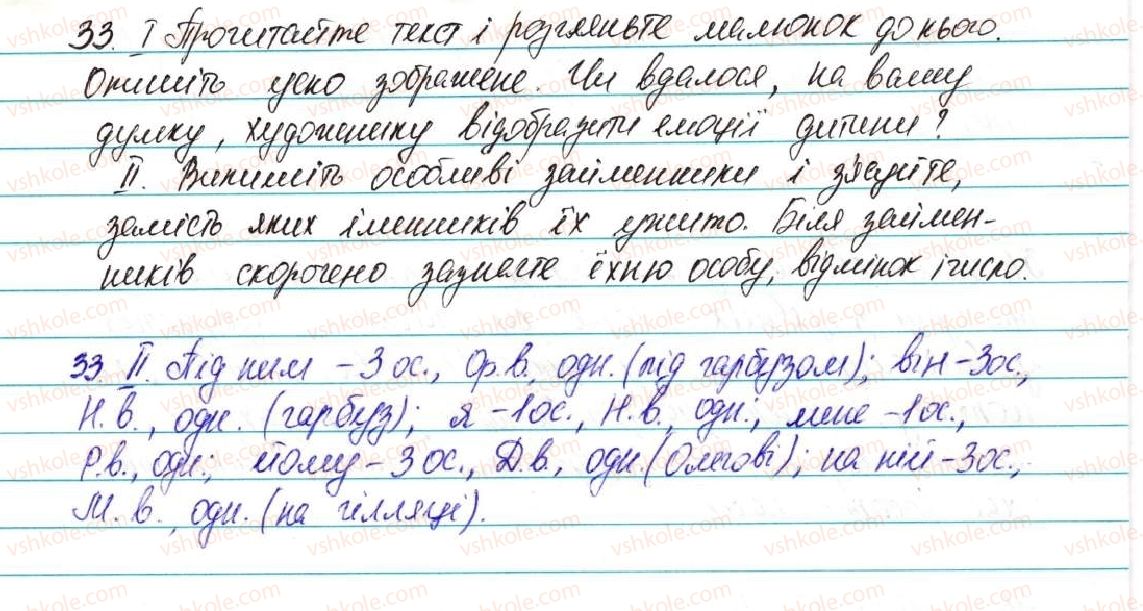 33. I Прочитайте текст і розгляньте малюнок до нього.
Опишіть усно зображене. Чи вдалося, на вашу
думку, художнику відобразити емоції дитини?
II. Випишіть особові займенники і з'ясуйте,
замість яких іменників їх ужито. Біля займен-
ників скорочено зазначте їхню особу, відмінок і число.
33. II. Під ним – 3 ос., Ор. в., одн. (під гарбузом); він – 3 ос.,
Н. в., одн. (гарбуз); я – 1 ос., Н. в., одн.; мене – 1 ос.,
Р. в., одн.; йому – 3 ос., Д. в., одн. (Олегові); на ній – 3 ос.,
М. в., одн. (на гілляці).